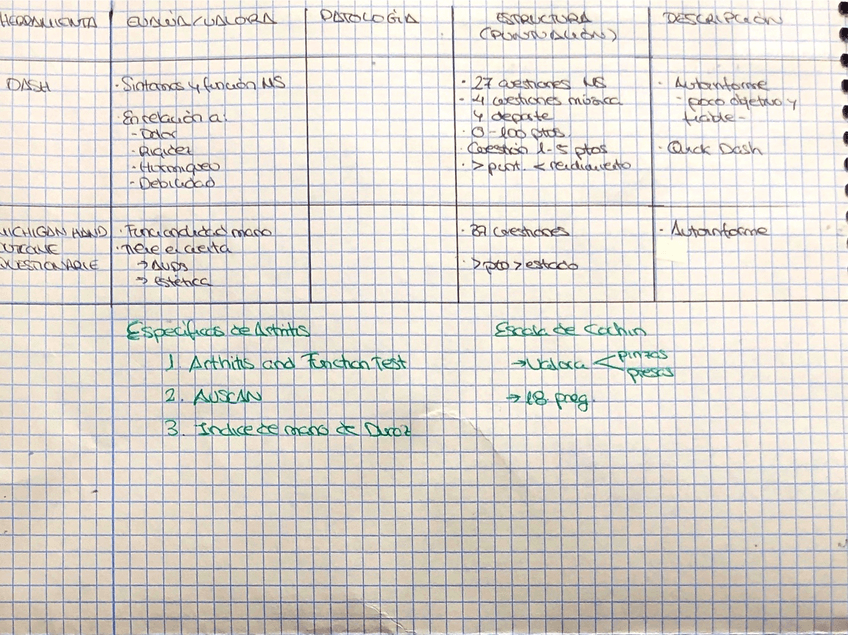 HERRAMIENTA EVALÚA/VALORA PATOLOGÍA ESTRUCTURA (PUNTUACIÓN) DESCRIPCIÓN
DASH
· Síntomas y función MS
· En relación a:
- Dolor
- Rigidez
- Hormigueo
- Debilidad
· 27 cuestiones MS
- 4 cuestiones música
y deporte
· 0-100 ptos
Cuestión 1-5 ptos
· > punt. < rendimiento
· Autoinforme
- poco objetivo y
fiable -
· Quick Dash
MICHIGAN HAND
QUESTIONABLE
· Funcionalidad mano
· Tiene en cuenta
→ AVDs
→ estética
· 37 cuestiones
· > pto > estado
· Autoinforme
Específicos de Artritis
1. Arthritis and Function Test
2. AUSCAN
3. Índice de mano de Duroz
Escala de Cochin
→ Valora < pinzas
presas
→ 18 preg.